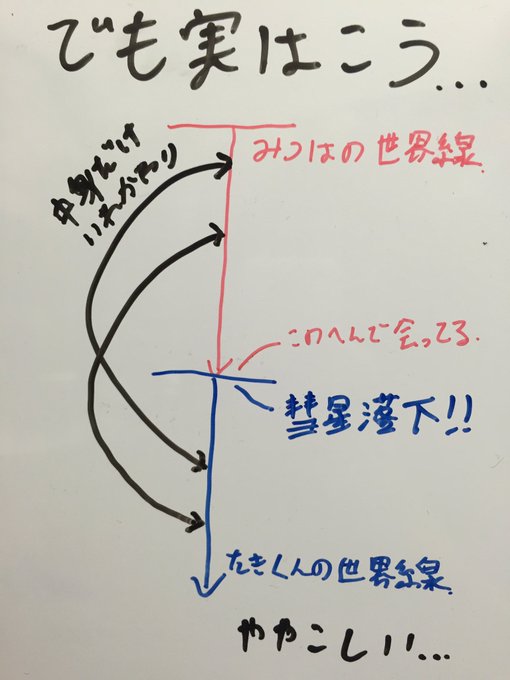 でも実はこう...
中身だけ
いれかわり
みつはの世界線
このへんで会ってる.
彗星落下!!
たきくんの世界線
ややこしい...